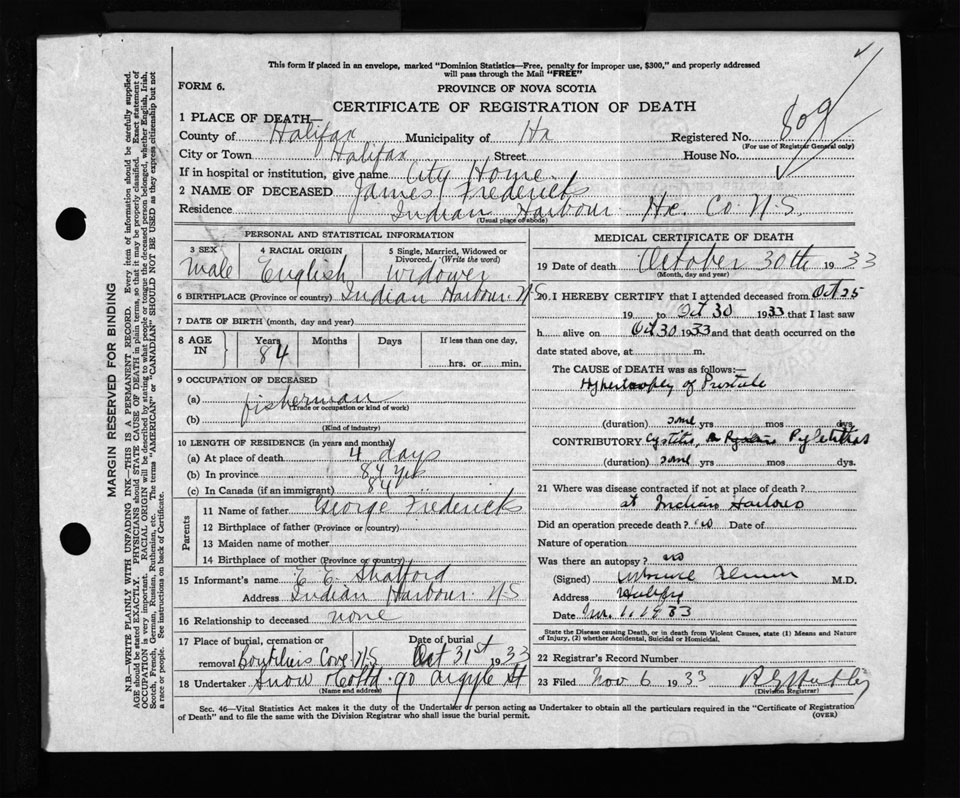 This form if placed in an envelope, marked "Dominion Statistics—Free, penalty for improper use, $300," and properly addressed
will pass through the Mail "FREE"
FORM 6.
PROVINCE OF NOVA SCOTIA
CERTIFICATE OF REGISTRATION OF DEATH
1 PLACE OF DEATH—
County of Halifax Municipality of Hx Registered No. 809
(For use of Registrar General only)
City or Town Halifax Street House No.
If in hospital or institution, give name City Home
2 NAME OF DECEASED James Fredericks
Residence Indian Harbour Hx. Co. N.S.
(Usual place of abode)
PERSONAL AND STATISTICAL INFORMATION
3 SEX 4 RACIAL ORIGIN 5 Single, Married, Widowed or
Divorced. (Write the word)
Male English widower
6 BIRTHPLACE (Province or country) Indian Harbour. N.S
7 DATE OF BIRTH (month, day and year)
8 AGE IN Years Months Days If less than one day,
84 hrs. or min.
9 OCCUPATION OF DECEASED
(a) fisherman
(Trade or occupation or kind of work)
(b)
(Kind of industry)
10 LENGTH OF RESIDENCE (in years and months)
(a) At place of death 4 days
(b) In province 84 yrs
(c) In Canada (if an immigrant) 84
Parents
11 Name of father George Fredericks
12 Birthplace of father (Province or country)
13 Maiden name of mother
14 Birthplace of mother (Province or country)
15 Informant's name E E Shatford
Address Indian Harbour N.S
16 Relationship to deceased none
17 Place of burial, cremation or Date of burial
removal Boutiliers Cove N.S Oct 31st 1933
18 Undertaker Snow & Co Ltd. 90 Argyle St
(Name and address)
MEDICAL CERTIFICATE OF DEATH
19 Date of death October 30th 1933
(Month, day and year)
20. I HEREBY CERTIFY that I attended deceased from Oct 25
19 to Oct 30 1933 that I last saw
h alive on Oct 30 1933 and that death occurred on the
date stated above, at m.
The CAUSE of DEATH was as follows:—
Hypertrophy of Prostate
(duration) some yrs mos dys.
CONTRIBUTORY Cystitis, Pyelitis
(duration) some yrs mos dys.
21 Where was disease contracted if not at place of death?
at Indian Harbour
Did an operation precede death? no Date of
Nature of operation
Was there an autopsy? no
(Signed) M.D.
Address Halifax
Date 1933
State the Disease causing Death, or in death from Violent Causes, state (1) Means and Nature
of Injury, (2) whether Accidental, Suicidal or Homicidal.
22 Registrar's Record Number
23 Filed Nov 6 1933
(Division Registrar)
Sec. 46—Vital Statistics Act makes it the duty of the Undertaker or person acting as Undertaker to obtain all the particulars required in the "Certificate of Registration
of Death" and to file the same with the Division Registrar who shall issue the burial permit.
(OVER)
MARGIN RESERVED FOR BINDING
N.B.—WRITE PLAINLY WITH UNFADING INK—THIS IS A PERMANENT RECORD. Every item of information should be carefully supplied.
AGE should be stated EXACTLY. PHYSICIANS should STATE CAUSE OF DEATH in plain terms, so that it may be properly classified. Exact statement of
OCCUPATION is very important. RACIAL ORIGIN will be described by stating to what people or tongue the deceased person belonged, whether English, Irish,
Scotch, French, German, Russian, Ruthenian, etc. The terms "AMERICAN" or "CANADIAN" SHOULD NOT BE USED as they express citizenship but not
a race or people. See instructions on back of Certificate.